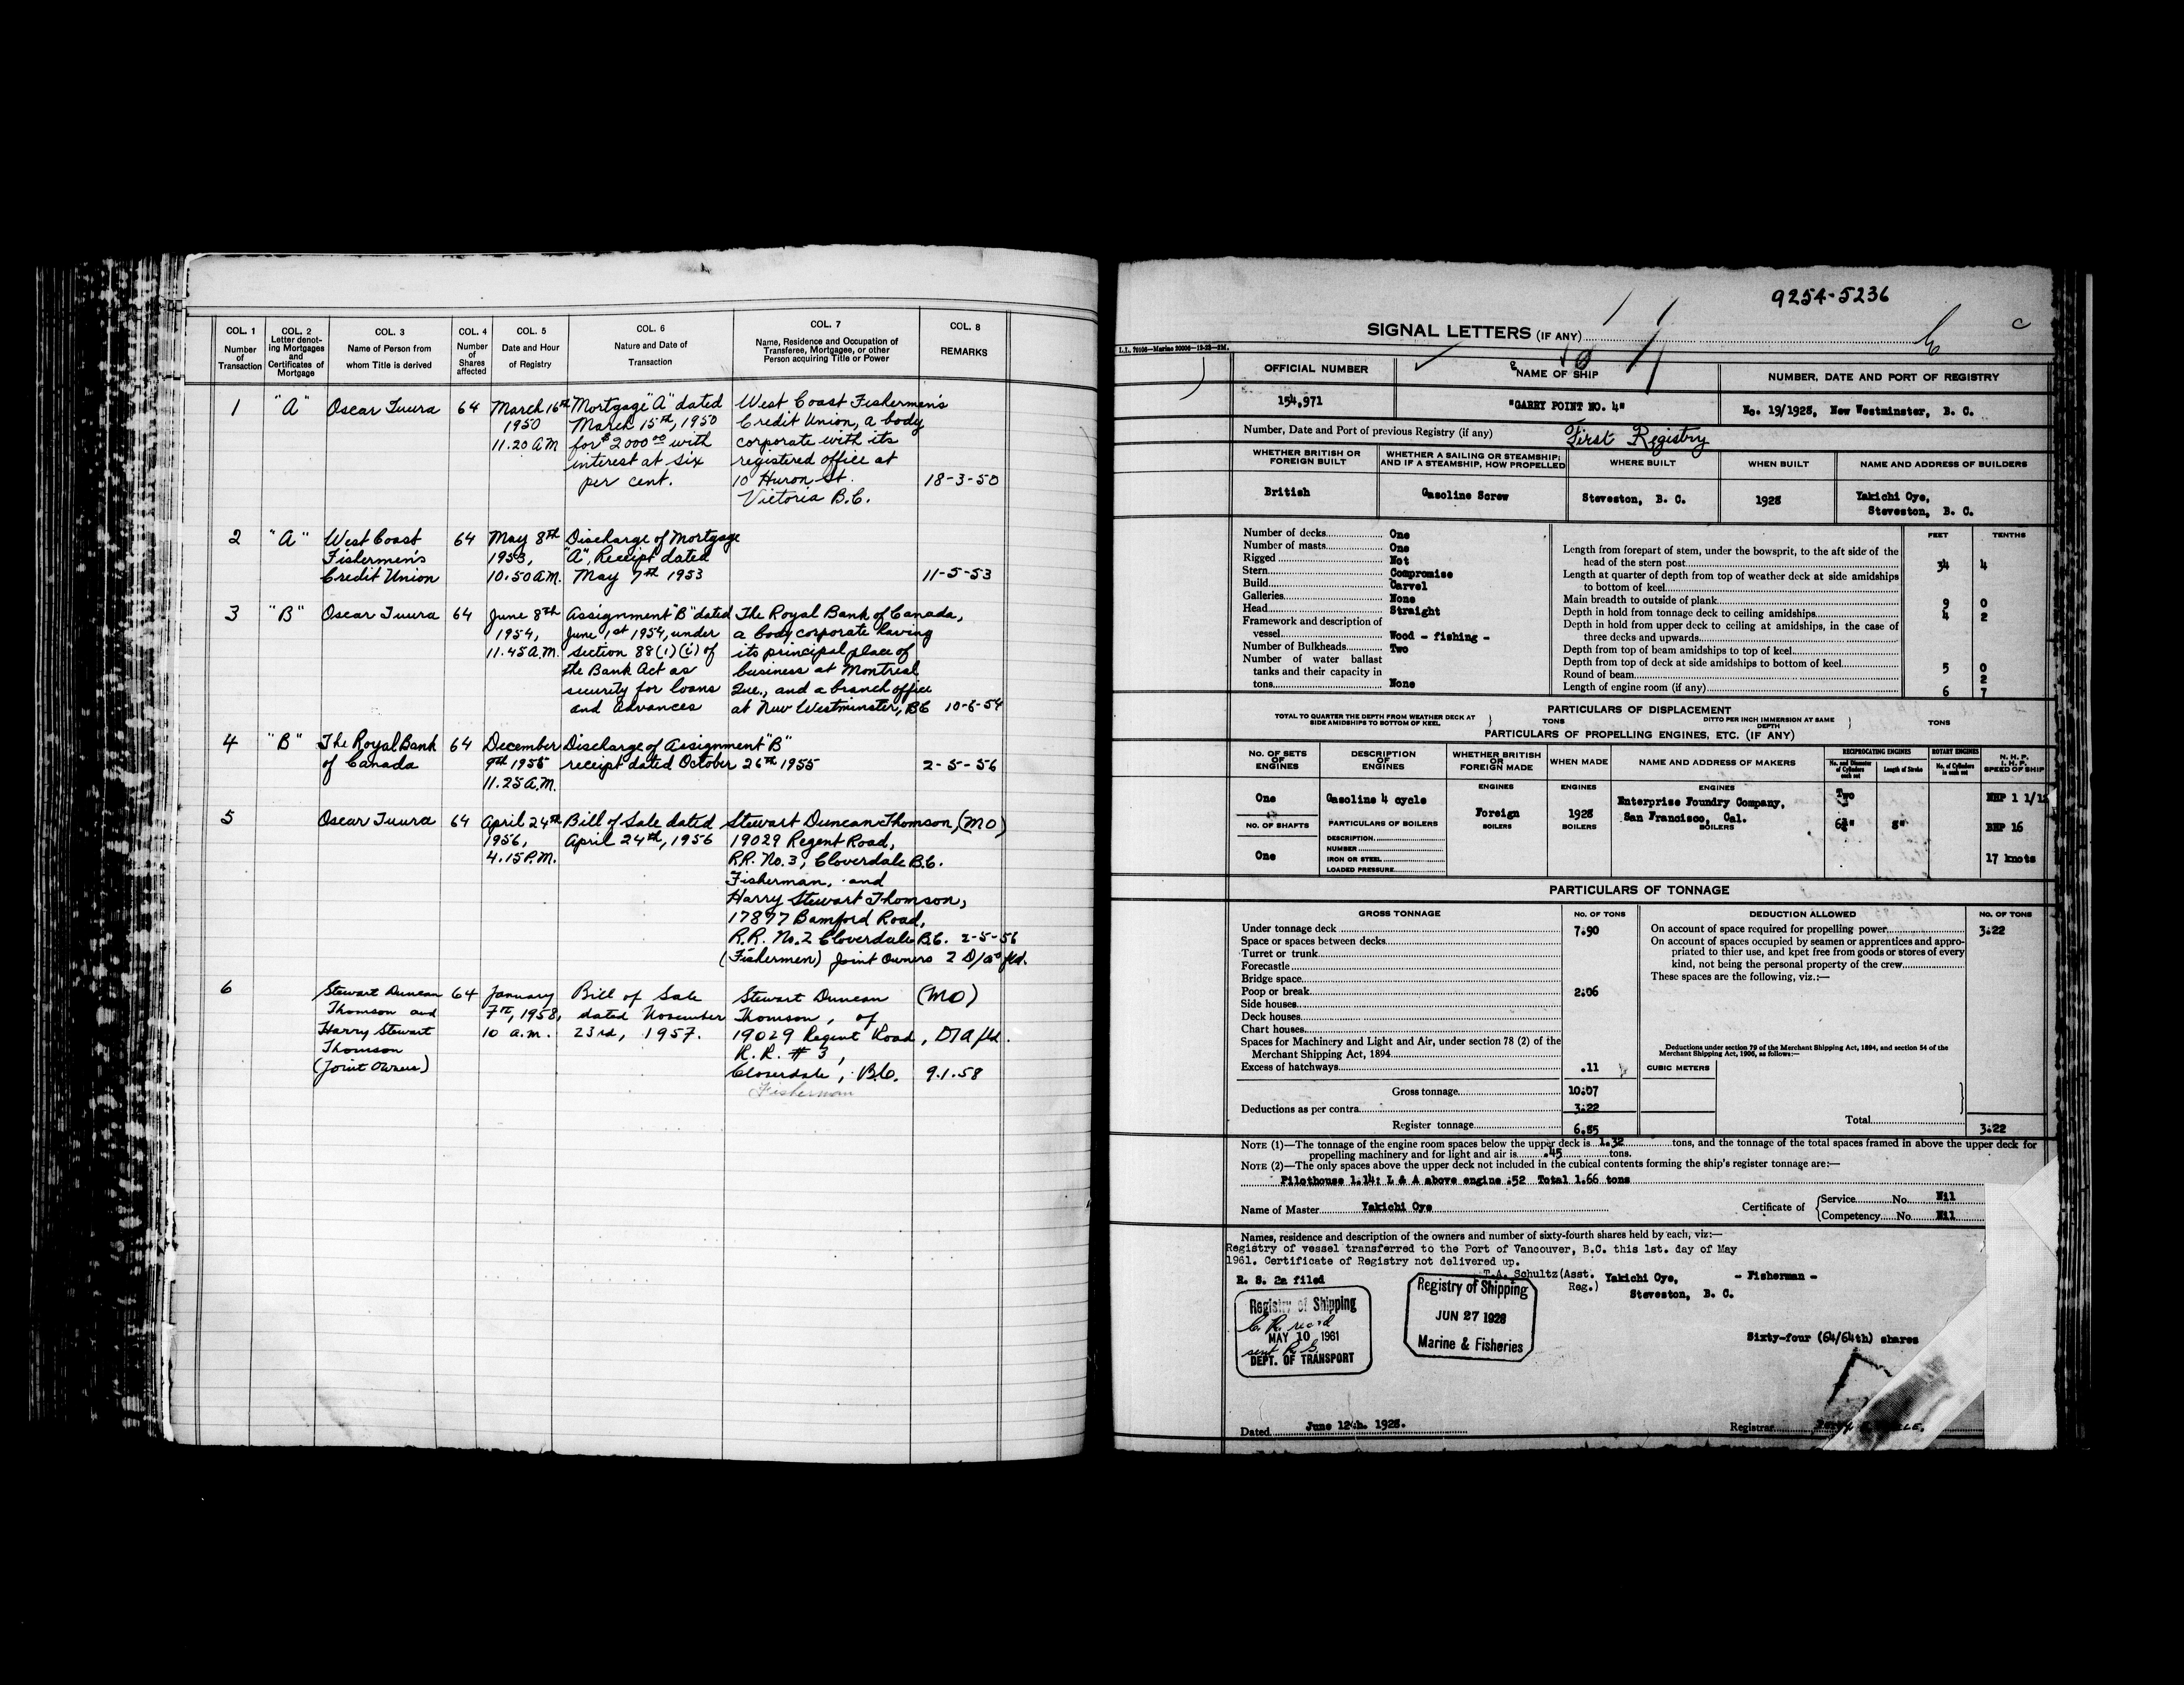 COL. 1
Number
of
Transaction
COL. 2
Letter denot-
ing Mortgages
and
Certificates of
Mortgage
COL. 3
Name of Person from
whom Title is derived
COL. 4
Number
of
Shares
affected
COL. 5
Date and Hour
of Registry
COL. 6
Nature and Date of
Transaction
COL. 7
Name, Residence and Occupation of
Transferee, Mortgagee, or other
Person acquiring Title or Power
COL. 8
REMARKS
1 "A" Oscar Tuura 64 March 16th Mortgage "A" dated West Coast Fishermen's
1950 March 15th, 1950 Credit Union, a body
11.20 AM for $2000.00 with corporate with its
interest at six registered office at
per cent. 10 Huron St. 18-3-50
Victoria B.C.
2 "A" West Coast 64 May 8th Discharge of Mortgage
Fishermen's 1953, "A", Receipt dated
Credit Union 10.50 A.M. May 7th 1953 11-5-53
3 "B" Oscar Tuura 64 June 8th Assignment "B" dated The Royal Bank of Canada,
1954, June 1st 1954, under a body corporate having
11.45 A.M. Section 88(1)(i) of its principal place of
the Bank Act as business at Montreal
security for loans Que., and a branch office
and advances at New Westminster, BC 10-6-54
4 "B" The Royal Bank 64 December Discharge of Assignment "B"
of Canada 9th 1955 receipt dated October 26th 1955 2-5-56
11.25 A.M.
5 Oscar Tuura 64 April 24th Bill of Sale dated Stewart Duncan Thomson, (MO)
1956, April 24th, 1956 19029 Regent Road,
4.15 P.M. R.R. No. 3, Cloverdale B.C.
Fisherman, and
Harry Stewart Thomson,
17877 Bamford Road,
R.R. No. 2 Cloverdale B.C. 2-5-56
(Fishermen) Joint Owners 2 D/as fld.
6 Stewart Duncan 64 January Bill of Sale Stewart Duncan (MO)
Thomson and 7th, 1958, dated November Thomson, of
Harry Stewart 10 a.m. 23rd, 1957. 19029 Regent Road, D/A fld.
Thomson R.R. # 3,
(Joint Owners) Cloverdale, B.C. 9.1.58
Fisherman
9254-5236
SIGNAL LETTERS (IF ANY)
L.L. 70106—Marine 30006—19-23—2M.
OFFICIAL NUMBER
NAME OF SHIP
NUMBER, DATE AND PORT OF REGISTRY
154,971
"GARRY POINT NO. 4"
No. 19/1928, New Westminster, B. C.
Number, Date and Port of previous Registry (if any) First Registry
WHETHER BRITISH OR
FOREIGN BUILT
WHETHER A SAILING OR STEAMSHIP;
AND IF A STEAMSHIP, HOW PROPELLED
WHERE BUILT
WHEN BUILT
NAME AND ADDRESS OF BUILDERS
British
Gasoline Screw
Steveston, B. C.
1928
Yakichi Oye,
Steveston, B. C.
Number of decks One
Number of masts One
Rigged Not
Stern Compromise
Build Carvel
Galleries None
Head Straight
Framework and description of
vessel Wood - fishing -
Number of Bulkheads Two
Number of water ballast
tanks and their capacity in
tons None
FEET TENTHS
Length from forepart of stem, under the bowsprit, to the aft side of the
head of the stern post 34 4
Length at quarter of depth from top of weather deck at side amidships
to bottom of keel
Main breadth to outside of plank 9 0
Depth in hold from tonnage deck to ceiling amidships 4 2
Depth in hold from upper deck to ceiling at amidships, in the case of
three decks and upwards
Depth from top of beam amidships to top of keel
Depth from top of deck at side amidships to bottom of keel 5 0
Round of beam 2
Length of engine room (if any) 6 7
PARTICULARS OF DISPLACEMENT
TOTAL TO QUARTER THE DEPTH FROM WEATHER DECK AT
SIDE AMIDSHIPS TO BOTTOM OF KEEL. } TONS
DITTO PER INCH IMMERSION AT SAME
DEPTH } TONS
PARTICULARS OF PROPELLING ENGINES, ETC. (IF ANY)
NO. OF SETS
OF
ENGINES
DESCRIPTION
OF
ENGINES
WHETHER BRITISH
OR
FOREIGN MADE
WHEN MADE
NAME AND ADDRESS OF MAKERS
RECIPROCATING ENGINES
No. and Diameter
of Cylinders
each set
Length of Stroke
ROTARY ENGINES
No. of Cylinders
in each set
N. H. P.
I. H. P.
SPEED OF SHIP
ENGINES ENGINES ENGINES
One Gasoline 4 cycle Foreign 1928 Enterprise Foundry Company,
San Francisco, Cal.
Two NHP 1 1/12
BOILERS BOILERS BOILERS
8" BHP 16
NO. OF SHAFTS
PARTICULARS OF BOILERS
DESCRIPTION
NUMBER
IRON OR STEEL
LOADED PRESSURE
One
17 knots
PARTICULARS OF TONNAGE
GROSS TONNAGE NO. OF TONS DEDUCTION ALLOWED NO. OF TONS
Under tonnage deck 7.90
Space or spaces between decks
Turret or trunk
Forecastle
Bridge space
Poop or break 2.06
Side houses
Deck houses
Chart houses
Spaces for Machinery and Light and Air, under section 78 (2) of the
Merchant Shipping Act, 1894
Excess of hatchways .11
Gross tonnage 10.07
Deductions as per contra 3.22
Register tonnage 6.85
On account of space required for propelling power 3.22
On account of spaces occupied by seamen or apprentices and appro-
priated to thier use, and kpet free from goods or stores of every
kind, not being the personal property of the crew
These spaces are the following, viz.:—
Deductions under section 79 of the Merchant Shipping Act, 1894, and section 54 of the
Merchant Shipping Act, 1906, as follows:—
CUBIC METERS
Total 3.22
NOTE (1)—The tonnage of the engine room spaces below the upper deck is 1.32 tons, and the tonnage of the total spaces framed in above the upper deck for
propelling machinery and for light and air is .45 tons.
NOTE (2)—The only spaces above the upper deck not included in the cubical contents forming the ship's register tonnage are:—
Pilothouse 1.14; L & A above engine .52 Total 1.66 tons
Name of Master Yakichi Oye
Certificate of { Service No. Nil
Competency No. Nil
Names, residence and description of the owners and number of sixty-fourth shares held by each, viz:—
Registry of vessel transferred to the Port of Vancouver, B.C. this 1st. day of May
1961. Certificate of Registry not delivered up.
T.A. Schultz (Asst.
Reg.)
R. S. 2a filed
Yakichi Oye, - Fisherman -
Steveston, B. C.
Registry of Shipping
MAY 10 1961
DEPT. OF TRANSPORT
Registry of Shipping
JUN 27 1928
Marine & Fisheries
Sixty-four (64/64th) shares
Dated June 12th. 1928.
Registrar